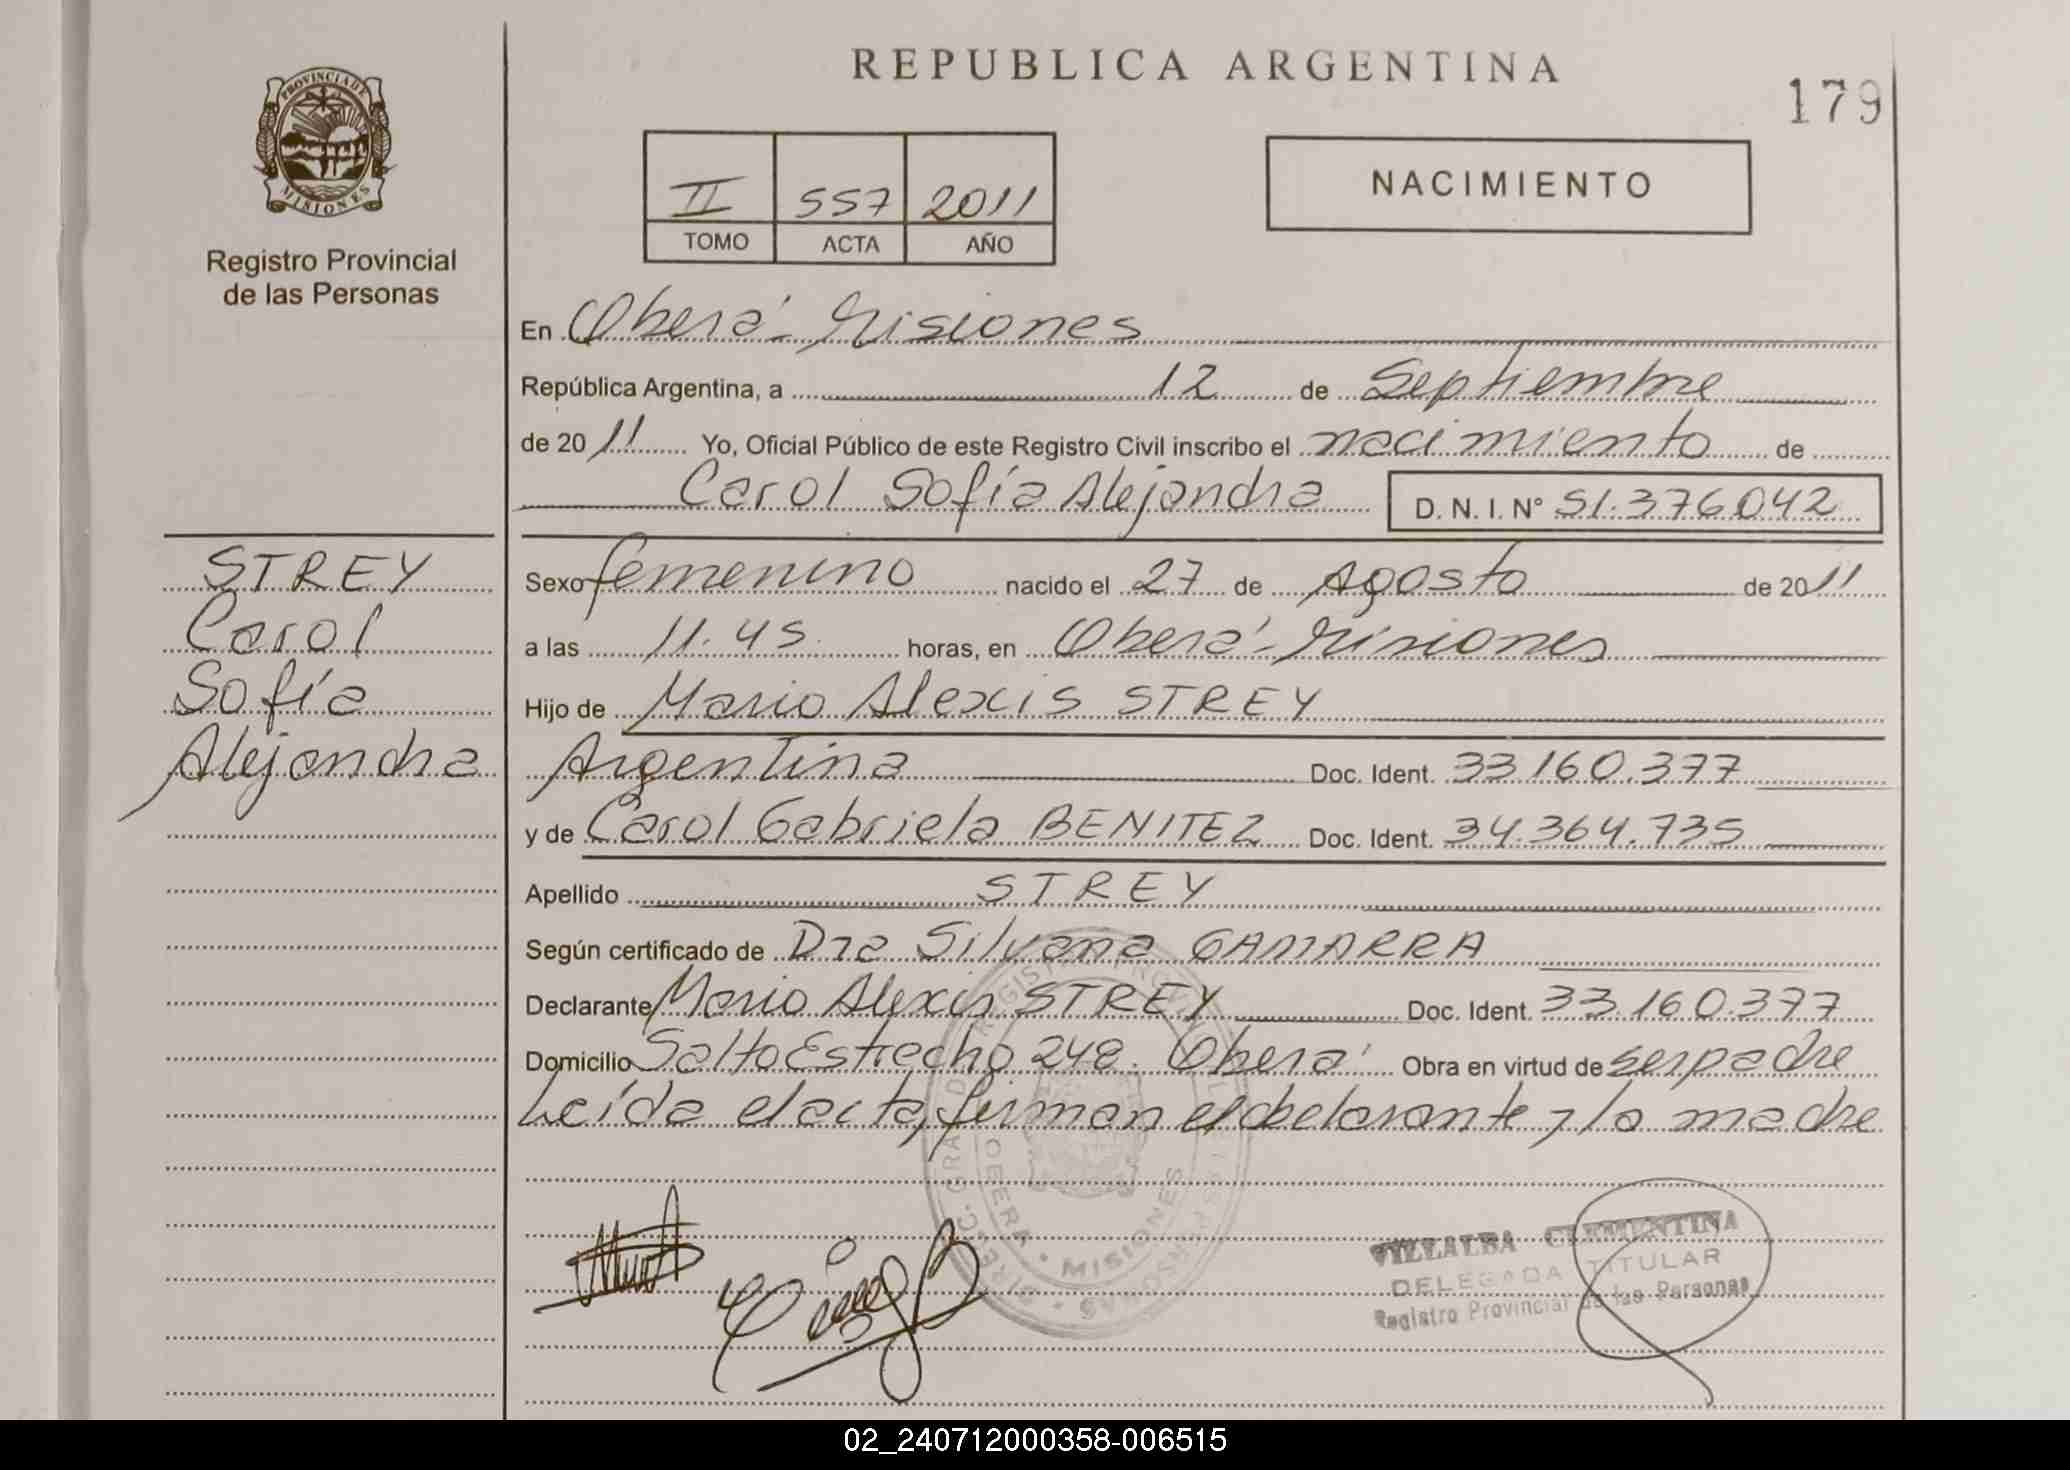 REPUBLICA ARGENTINA
179
PROVINCIA DE
MISIONES
Registro Provincial
de las Personas
II 557 2011
TOMO ACTA AÑO
NACIMIENTO
En Oberá - Misiones
República Argentina, a 12 de Septiembre
de 2011 Yo, Oficial Público de este Registro Civil inscribo el nacimiento de
Carol Sofía Alejandra D. N. I. N° 51.376.042
STREY
Carol
Sofía
Alejandra
Sexo femenino nacido el 27 de Agosto de 2011
a las 11.45 horas, en Oberá - Misiones
Hijo de Mario Alexis STREY
Argentina Doc. Ident. 33.160.377
y de Carol Gabriela BENITEZ Doc. Ident. 34.364.735
Apellido STREY
Según certificado de Dra Silvana GAMARRA
Declarante Mario Alexis STREY Doc. Ident. 33.160.377
Domicilio Salto Estrecho 248. Oberá Obra en virtud de ser padre
Leída el acta, firman el declarante y la madre
MISIONES
VILLALBA CLEMENTINA
DELEGADA TITULAR
Registro Provincial de las Personas
02_240712000358-006515